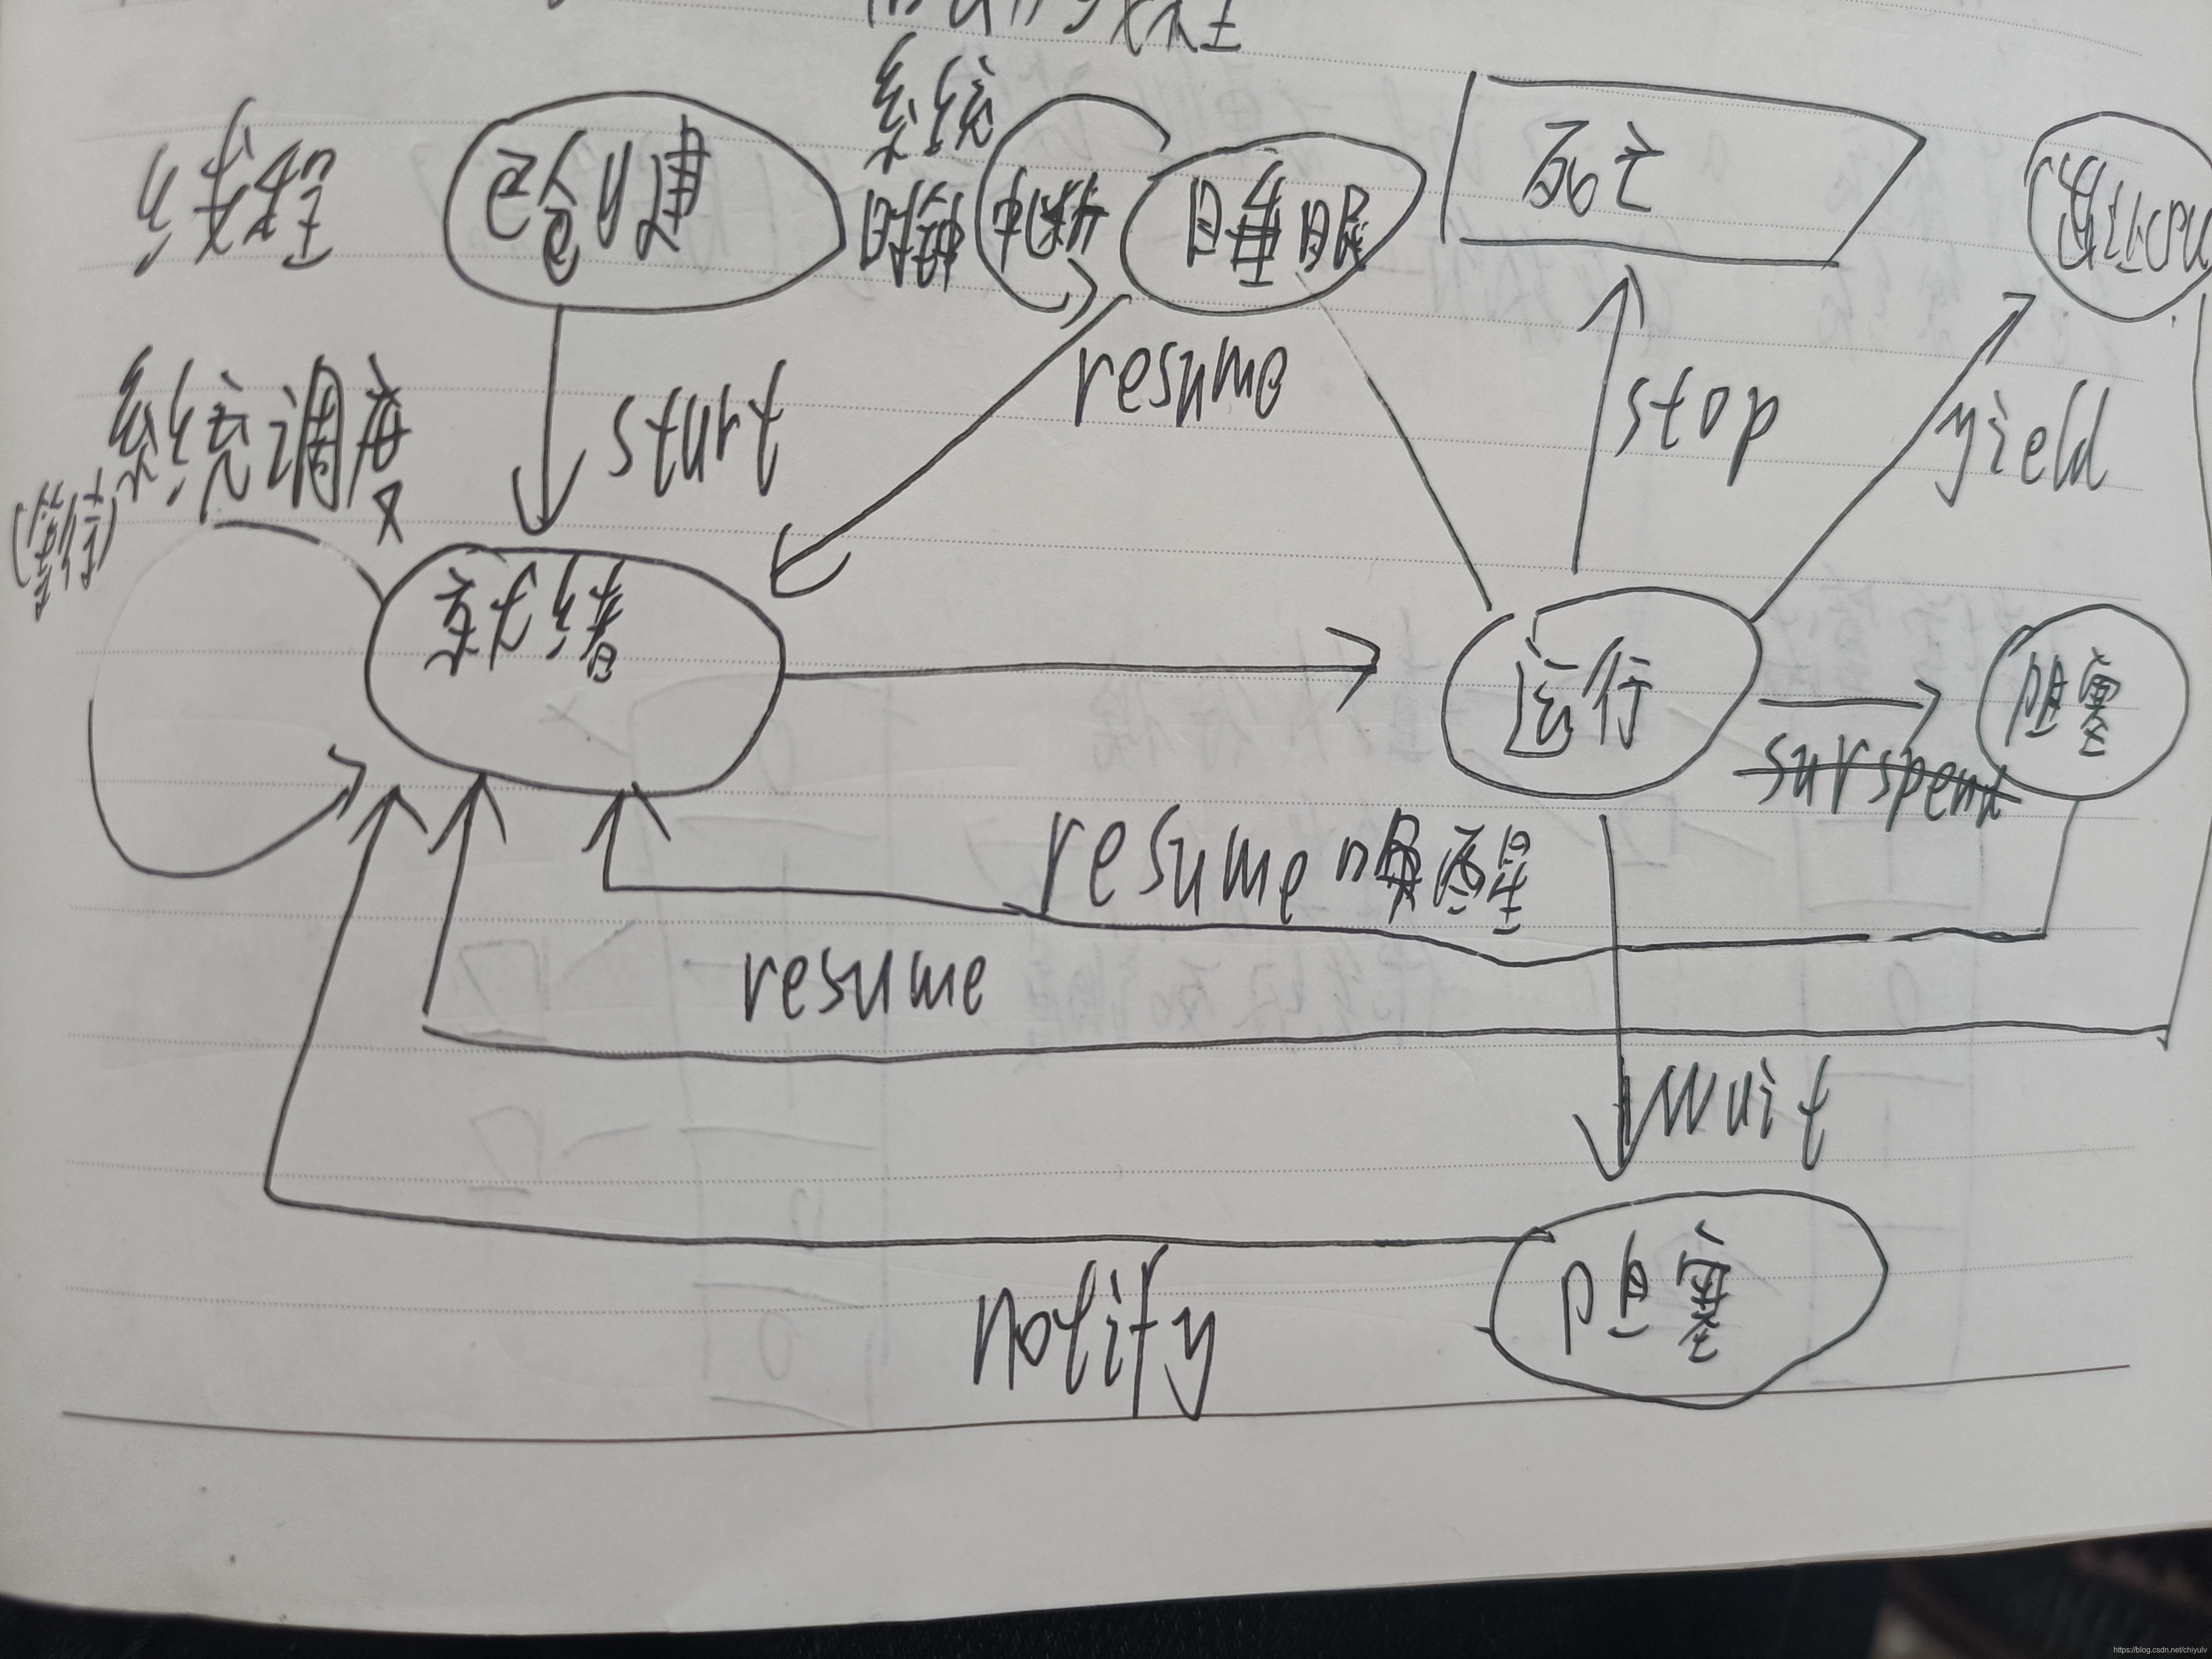 线程
已创建
系统
时钟
中断
睡眠
死亡
让出CPU
start
resume
stop
yield
系统调度
(等待)
就绪
运行
阻塞
surspend
resume唤醒
resume
wait
阻塞
notify
https://blog.csdn.net/chiyulv